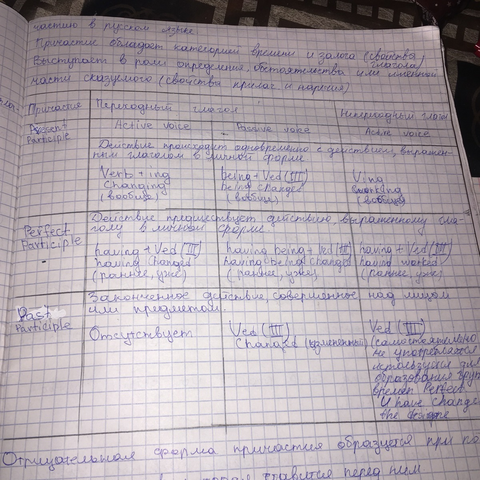 частию в русском языке
Причастие обладает категорией времени и залога (свойства глагола)
Выступает в роли определения, обстоятельства или именной
части сказуемого (свойства прилаг. и наречия)
Причастие Переходный глагол Непереходный глагол
Present Participle Active voice Passive voice Active voice
Действие происходит одновременно с действием, выражен-
ным глаголом в личной форме
Verb + ing being + Ved (III) Ving
changing being changed working
(вообще) (вообще) (вообще)
Perfect Participle Действие предшествует действию, выраженному гла-
голу в личной форме
having + Ved (III) having being + Ved (III) having + Ved (III)
having changed having being changed having worked
(ранее, уже) (ранее, уже) (ранее, уже)
Past Participle Законченное действие, совершенное над лицом
или предметом.
Отсутствует Ved (III) Ved (III)
Changed (измененный) (самостоятельно
не употребляется
используется для
образования груп
времен Perfect
I have change
the
Отрицательная форма причастия образуется при по
ставится перед ним